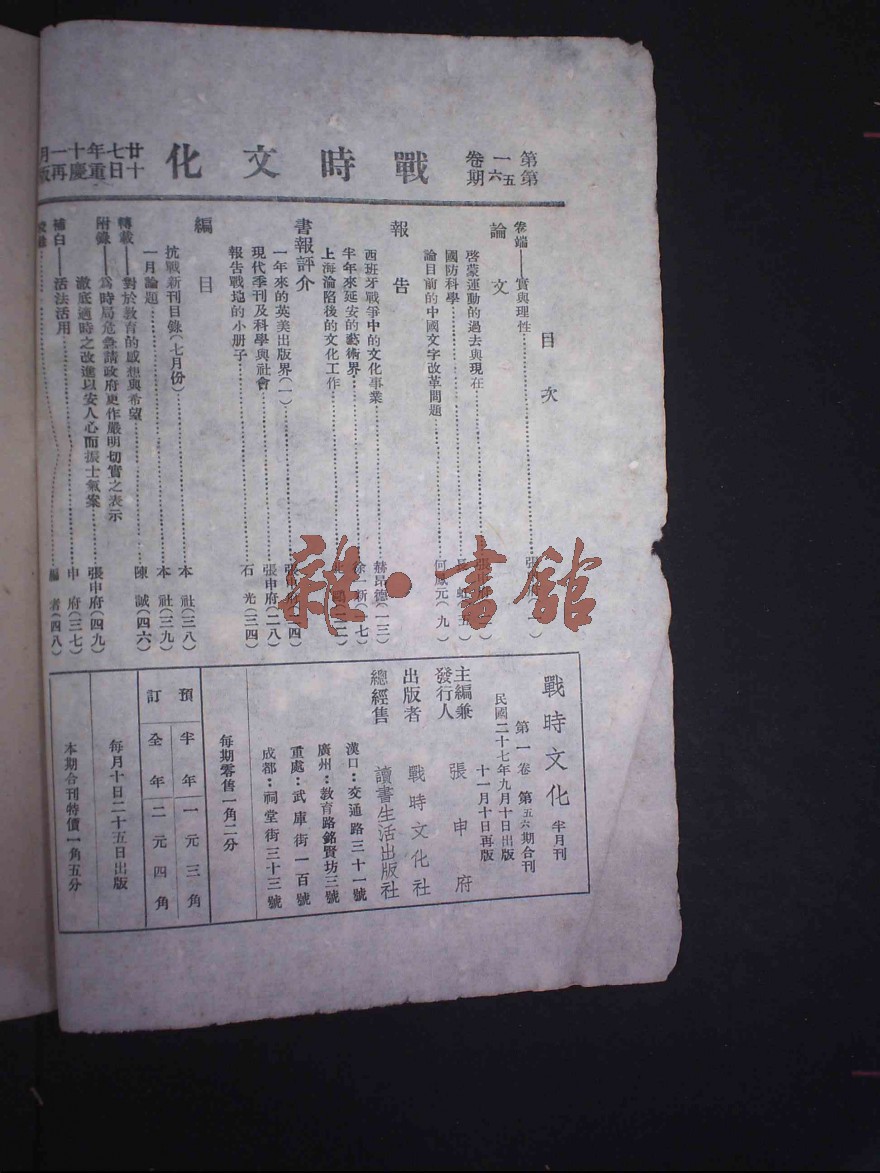 第一卷
第五六期
戰時文化
廿七年十一月
十日重慶再版
目次
卷端——實與理性
論文
啓蒙運動的過去與現在
國防科學
論目前的中國文字改革問題 何鳳元(九)
報告
西班牙戰爭中的文化事業 赫昂德(一三)
半年來延安的藝術界 徐一新(一七)
上海淪陷後的文化工作
書報評介
一年來的英美出版界(一)
現代季刊及科學與社會 張申府(二八)
報告戰地的小册子 石光(三四)
編目
抗戰新刊目錄(七月份) 本社(三八)
一月論題 本社(三九)
轉載——對於教育的感想與希望 陳誠(四六)
附錄——爲時局危急請政府更作嚴明切實之表示
澈底適時之改進以安人心而振士氣案 張申府(四九)
補白——活法活用 申府(三七)
編者(四八)
戰時文化 半月刊
第一卷 第五六期合刊
民國二十七年九月十日出版
十一月十日再版
主編兼發行人 張申府
出版者 戰時文化社
總經售 讀書生活出版社
漢口:交通路三十一號
廣州:教育路銘賢坊三號
重處:武庫街一百號
成都:祠堂街三十三號
每期零售一角二分
預訂
半年一元三角
全年二元四角
每月十日二十五日出版
本期合刊特價一角五分
雜·書館